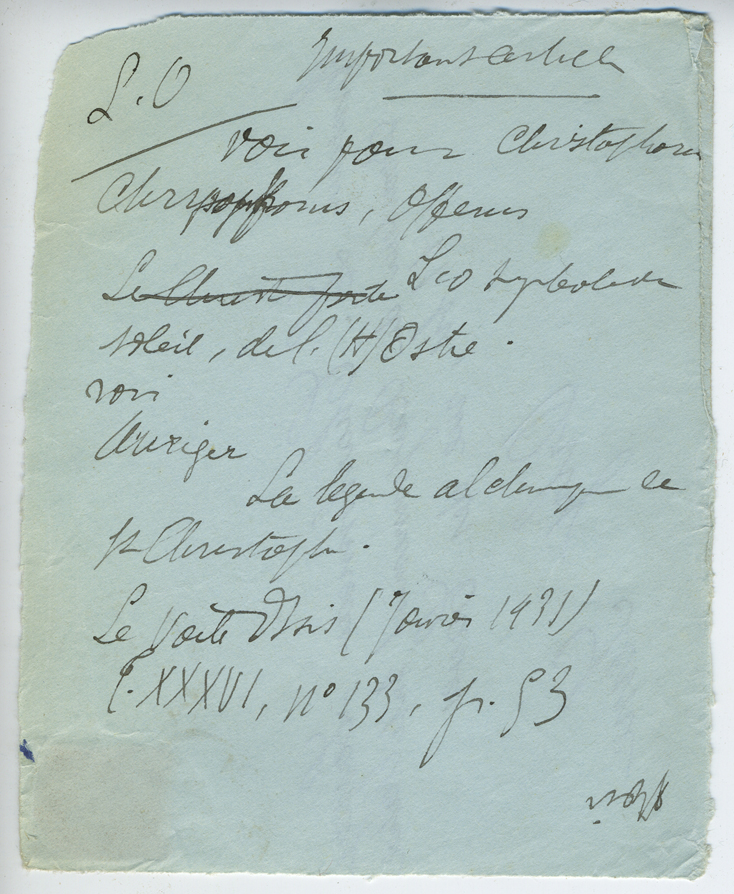 L.O
Important article
Voir pour Christophorus
Chrysophorus, Offerus
Le Christ porte L'O symbole du
soleil, de l'(H)Ostie.
voir
Auriger
La légende alchimique de
St Christophe.
Le Voile d'Isis (Janvier 1931)
t. XXXVI, n° 133, p. 53